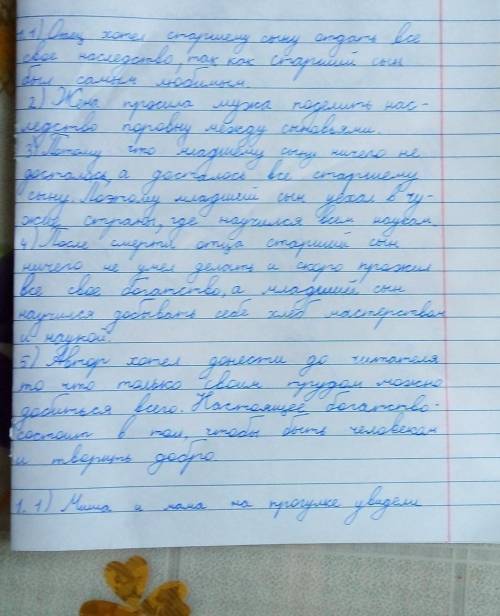 1.1) Отец хотел старшему сыну отдать все
свое наследство, так как старший сын
был самым любимым.
2) Жена просила мужа поделить нас-
ледство поровну между сыновьями.
3) Потому что младшему сыну ничего не
досталось, а досталось все старшему
сыну. Поэтому младший сын уехал в чу-
жие страны, где научился всем наукам.
4) После смерти отца старший сын
ничего не умел делать и скоро прожил
все свое богатство, а младший сын
научился добывать себе хлеб мастерством
и наукой.
5) Автор хотел донести до читателя
то что только своим трудом можно
добиться всего. Настоящее богатство-
состоит в том, чтобы быть человеком
и творить добро.
1. 1) Миша и мама на прогулке увидели